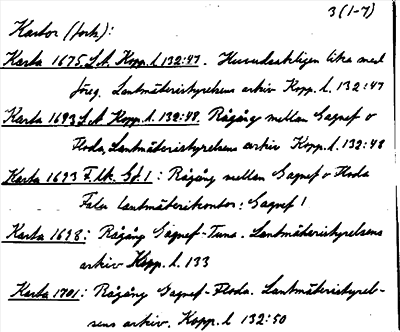 3(1-7)
Kartor (forts.):
Karta 1675 L.st. Kopp. l. 132:47. Huvudsakligen lika med
föreg. Lantmäteristyrelsens arkiv Kopp. l. 132:47
Karta 1693 L.st. Kopp. l. 132:48. Rågång mellan Gagnef o
Floda, Lantmäteristyrelsens arkiv Kopp. l. 132:48
Karta 1693 F.lk. Gd. 1: Rågång mellan Gagnef o Floda
Falu lantmäterikontor: Gagnef 1
Karta 1698: Rågång Gagnef-Tuna. Lantmäteristyrelsens
arkiv Kopp. l. 133
Karta 1701: Rågång Gagnef-Floda. Lantmäteristyrel-
sens arkiv. Kopp. l 132:50